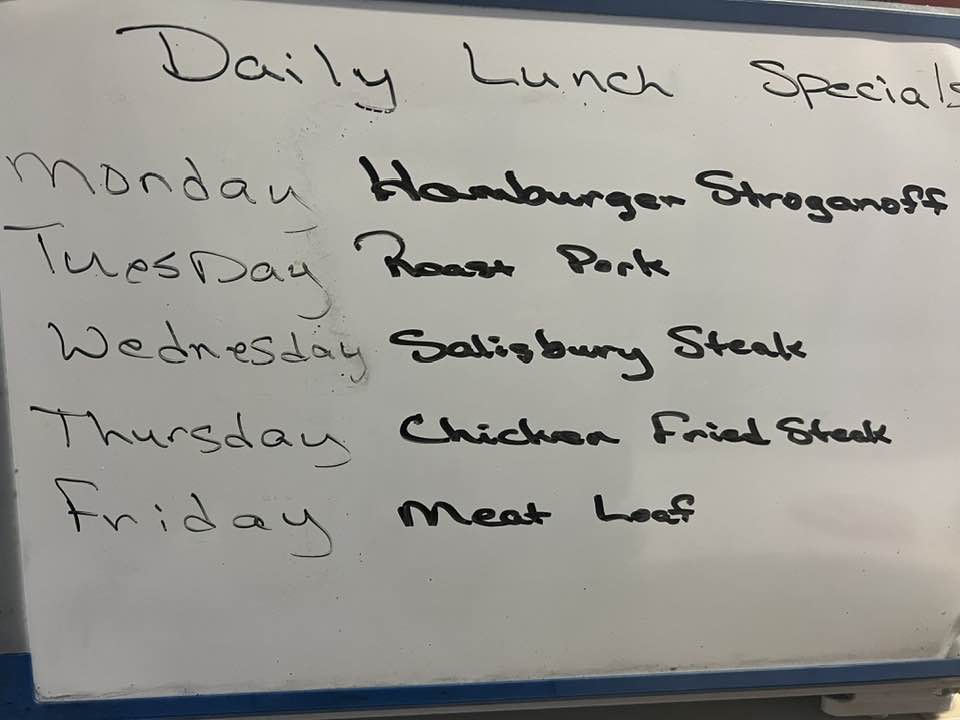 Daily Lunch Specials
Monday Hamburger Stroganoff
TuesDay Roast Pork
Wednesday Salisbury Steak
Thursday Chicken Fried Steak
Friday Meat Loaf